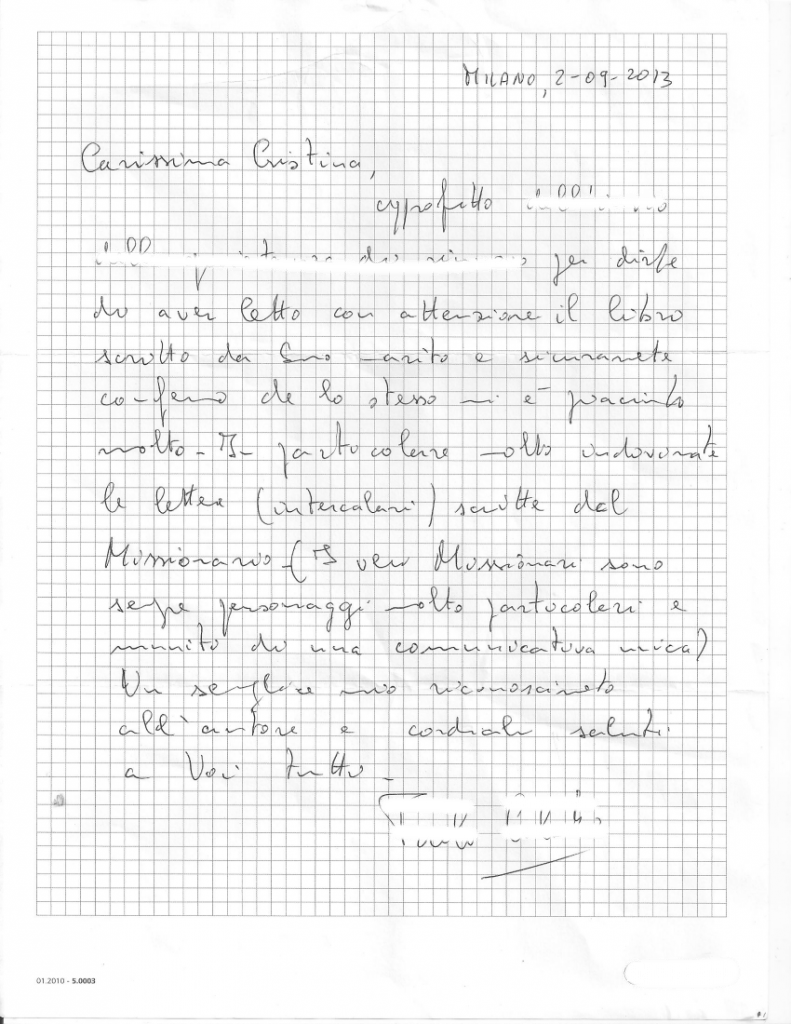 MILANO, 2-09-2013
Carissima Cristina,
approfitto
per dirle
di aver letto con attenzione il libro
scritto da Suo marito e sicuramente
confermo che lo stesso mi è piaciuto
molto - In particolare molto indovinate
le lettere (intercalari) scritte dal
Missionario - (I veri Missionari sono
sempre personaggi molto particolari e
muniti di una comunicativa unica)
Un semplice mio riconoscimento
all'autore e cordiali saluti
a Voi tutti -
01.2010 - 5.0003